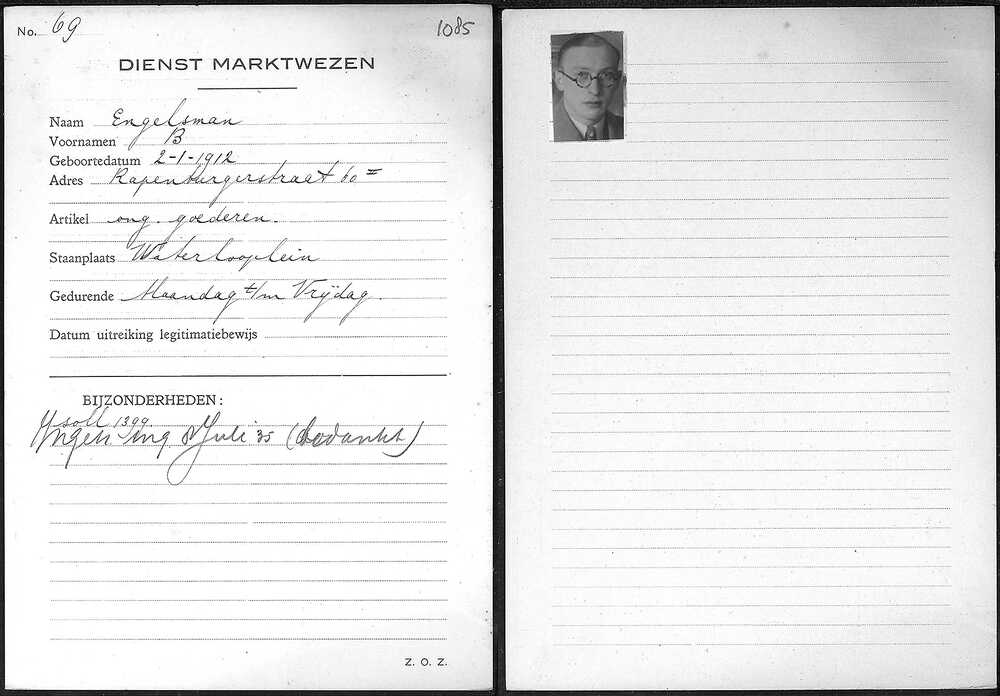 No. 69
1085
DIENST MARKTWEZEN
Naam Engelsman
Voornamen B
Geboortedatum 2-1-1912
Adres Rapenburgerstraat 60 II
Artikel ong. goederen.
Staanplaats Waterlooplein
Gedurende Maandag t/m Vrijdag.
Datum uitreiking legitimatiebewijs
BIJZONDERHEDEN:
soll 1399
ing Juli 35 (bedankt)
Z. O. Z.